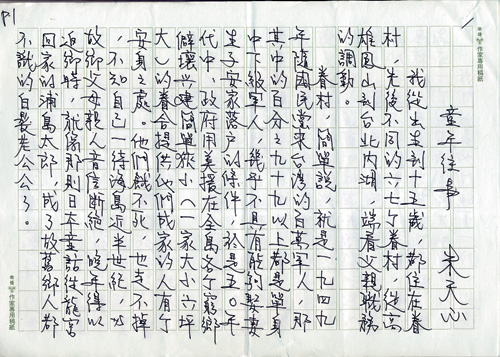 童年往事　朱天心
我從出生到十五歲，都住在眷
村，先後不同的六七个眷村，從高
雄鳳山到台北內湖，端看父親職務
的調動。
眷村，簡單說，就是一九四九
年隨國民黨來台灣的百萬軍人，那
其中的百分之九十九以上都是單身
中下級軍人，幾乎不具有能夠娶妻
生子安家落戶的條件，於是五〇年
代中，政府用美援在全島各个窮鄉
僻壤興建簡單狹小（一家大小六坪
大）的眷舍提供他們成家的人有个
安身之處。他們餓不死，也走不掉
，不知自己一待海島近半世紀，與
故鄉父母親人音信斷絕，晚年得以
返鄉時，就像那則日本童話從龍宮
回家的浦島太郎，成了故舊鄉人都
不識的白髮老公公了。
P1
作家專用稿紙
作家專用稿紙